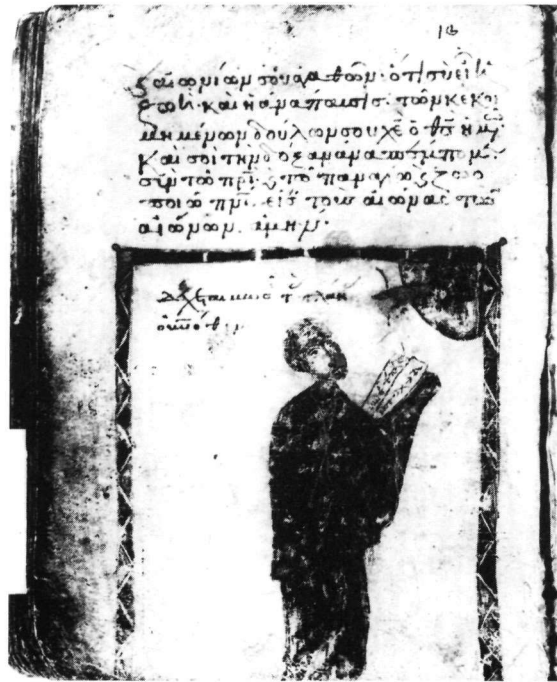 ς αἰωνίων σου ἀγαθῶν· ὅτι σὺ εἶ ἡ
ζωὴ καὶ ἡ ἀνάπαυσις τῶν κεκοι
μημένων δούλων σου χε ὁ θς ἡμῶν
καὶ σοὶ τὴν δόξαν ἀναπέμπομεν
σὺν τῶ πρὶ ς τῶ παναγίω ς ζωο
ποιῶ πνι· εἰς τοὺς αἰῶνας τῶν
αἰώνων· ἀμήν·